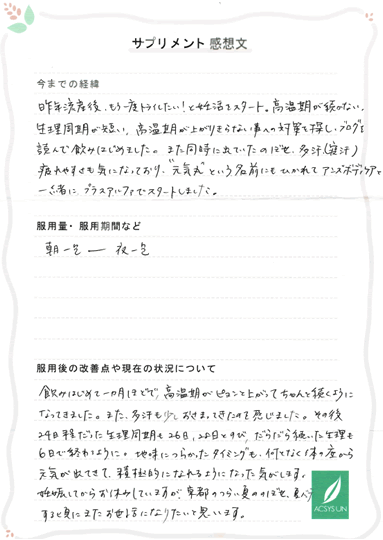 サプリメント 感想文
今までの経緯
昨年流産後、もう一度トライしたい!と妊活をスタート。高温期が続かない、
生理周期が短い、高温期が上がりきらない事への対策を探し、ブログを
読んで飲みはじめました。また同時に出ていたのぼせ、多汗(寝汗)
疲れやすさも気になっており、"元気丸"という名前にもひかれてアンズボディケアと
一緒に、プラスアルファでスタートしました。
服用量・服用期間など
朝一包 ― 夜一包
服用後の改善点や現在の状況について
飲みはじめて一カ月ほどで、高温期がピョンと上がってちゃんと続くように
なってきました。また、多汗も少しおさまってきたのを感じました。その後
24日程だった生理周期も26日、28日とのび、だらだら続いた生理も
6日で終わるように。地味につらかったタイミングも、何となく体の底から
元気が出てきて、積極的になれるようになった気がします。
妊娠してからお休みしていますが、京都のつらい夏ののぼせ、
すると夏にまたお世話になりたいと思います。
ACSYSUN